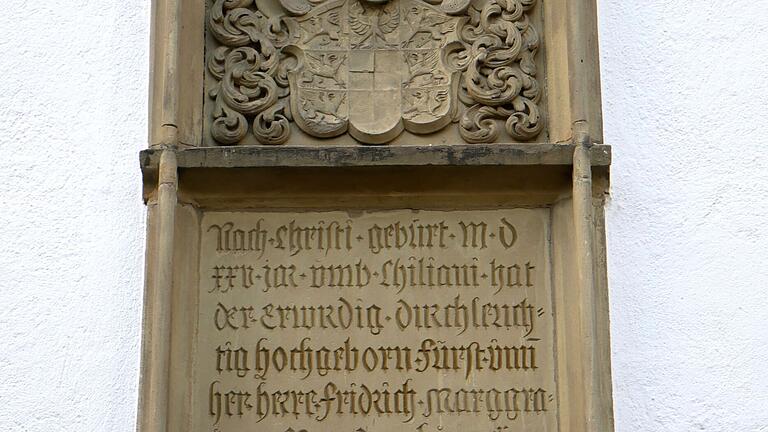 Nach·Christi·gebürt·M·D
xxv·jar·vmb·Chiliani·hat
der·Erwrdig·durchleuch=
tig hochgeborn Fürst·vnn̄
her·herr·Fridrich·Marggra=